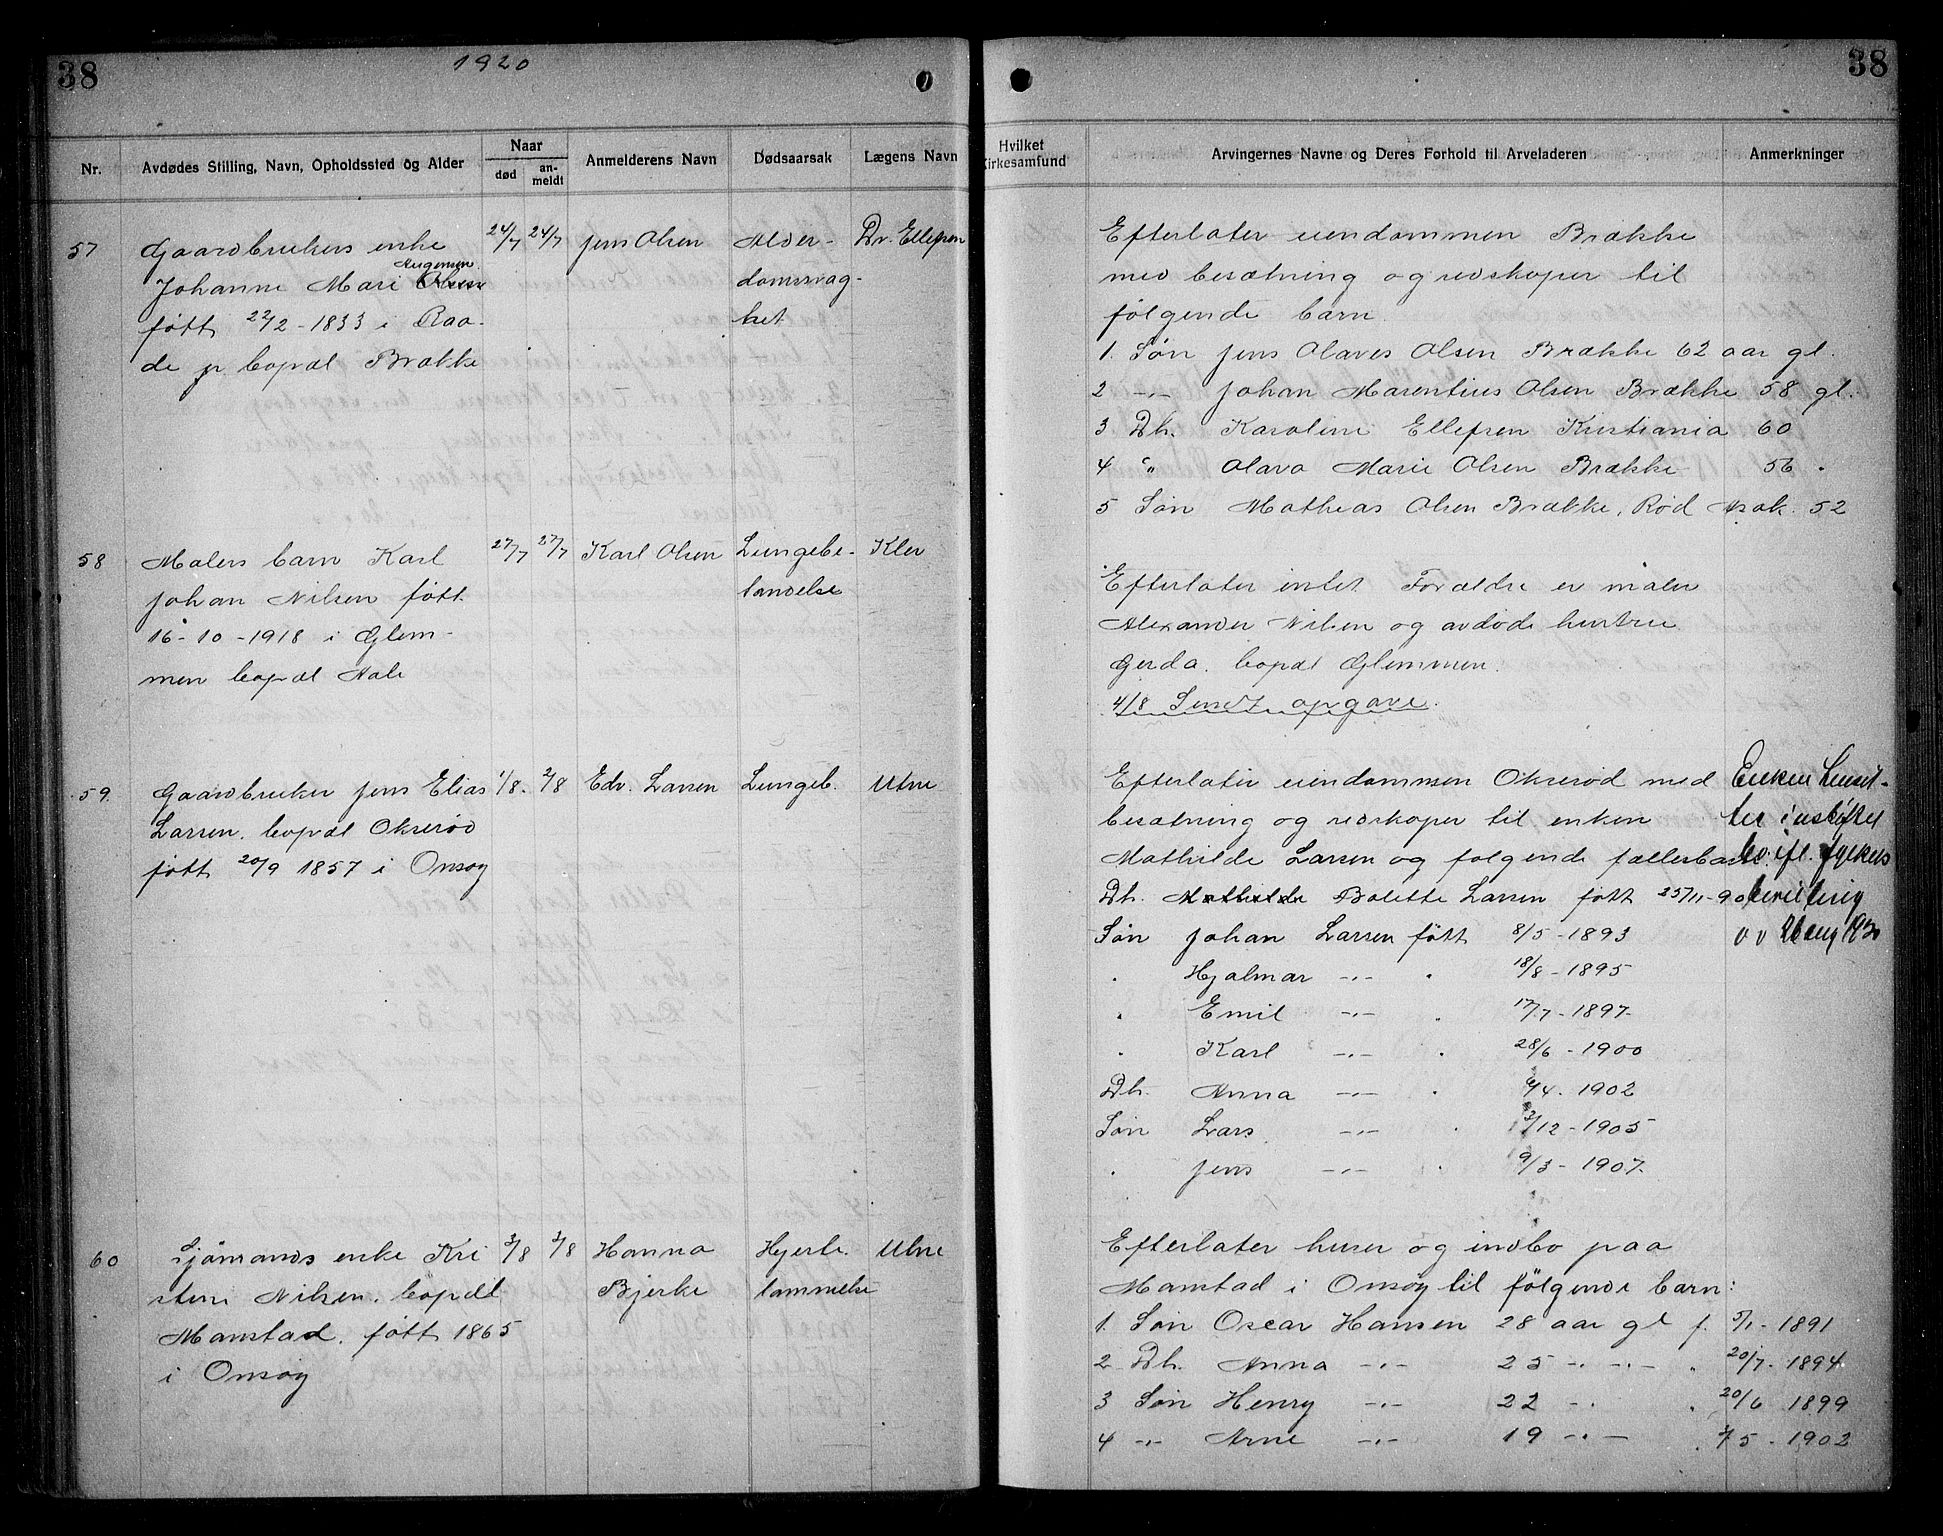 38
1920
38
Nr.
Avdødes Stilling, Navn, Opholdssted og Alder
Naar
død
an-
meldt
Anmelderens Navn
Dødsaarsak
Lægens Navn
Hvilket
Kirkesamfund
Arvingernes Navne og Deres Forhold til Arveladeren
Anmerkninger
57
Gaardbrukers enke
Johanne Mari Olsen
født 22/2 - 1833 i Raa-
de bopæl Brække
24/7
24/7
Jens Olsen
Alder-
domssvag-
het
Dr. Ellefsen
Efterlater eiendommen Brække
med besætning og redskaper til
følgende barn
1. Søn Jens Olaves Olsen Brække 62 aar gl.
2 -"- Johan Marentius Olsen Brække 58 gl.
3 Dh. Karoline Ellefsen Kristiania 60
4 " Olava Marie Olsen Brække 56 "
5 Søn Mathias Olsen Brække, Rød Arak. 52
58
Malers barn Karl
Johan Nilsen født
16-10-1918 i Glem-
men bopæl Hale
27/7
27/7
Karl Olsen
Lungebe-
tændelse
Kler
Efterlater intet Forældre er maler
Alexander Nilsen og avdøde hustru
Gerda. bopæl Glemmen.
4/8 Sendt opgave.
59.
Gaardbruker Jens Elias
Larsen. bopæl Okserød
født 20/9 1857 i Onsøy
1/8.
2/8
Edv. Larsen
Lungeb.
Utne
Efterlater eiendommen Okserød med
besætning og redskaper til enken
Mathilde Larsen og følgende fællesbarn.
Dh. Mathilde Bolette Larsen født 25/11-90
Søn Johan Larsen født 8/5 - 1893
" Hjalmar -"- " 18/8 - 1895
" Emil -"- " 17/7 - 1897
" Karl -"- " 28/6 - 1900
Dh. Anna -"- " 6/4 - 1902
Søn Lars -"- " 3/12 - 1905
" Jens -"- " 9/3 - 1907
Enken hensit-
ter i uskiftet
bo ifl. fylkets
bevilling
av
60
Sjømands enke Kri
stine Nilsen. bopæl
Manstad. født 1865
i Onsøy
3/8
3/8
Hanna
Bjerke
Hjerte
lammelse
Utne
Efterlater huser og indbo paa
Manstad i Onsøy til følgende barn:
1. Søn Oscar Hansen 28 aar gl f. 5/1 - 1891
2 Dh. Anna -"- 25 -"- -"- " 20/7 - 1894
3 Søn Henry -"- 22 -"- " 20/6 1899
4 -"- Arne -"- 19 -"- " 3/5 - 1902